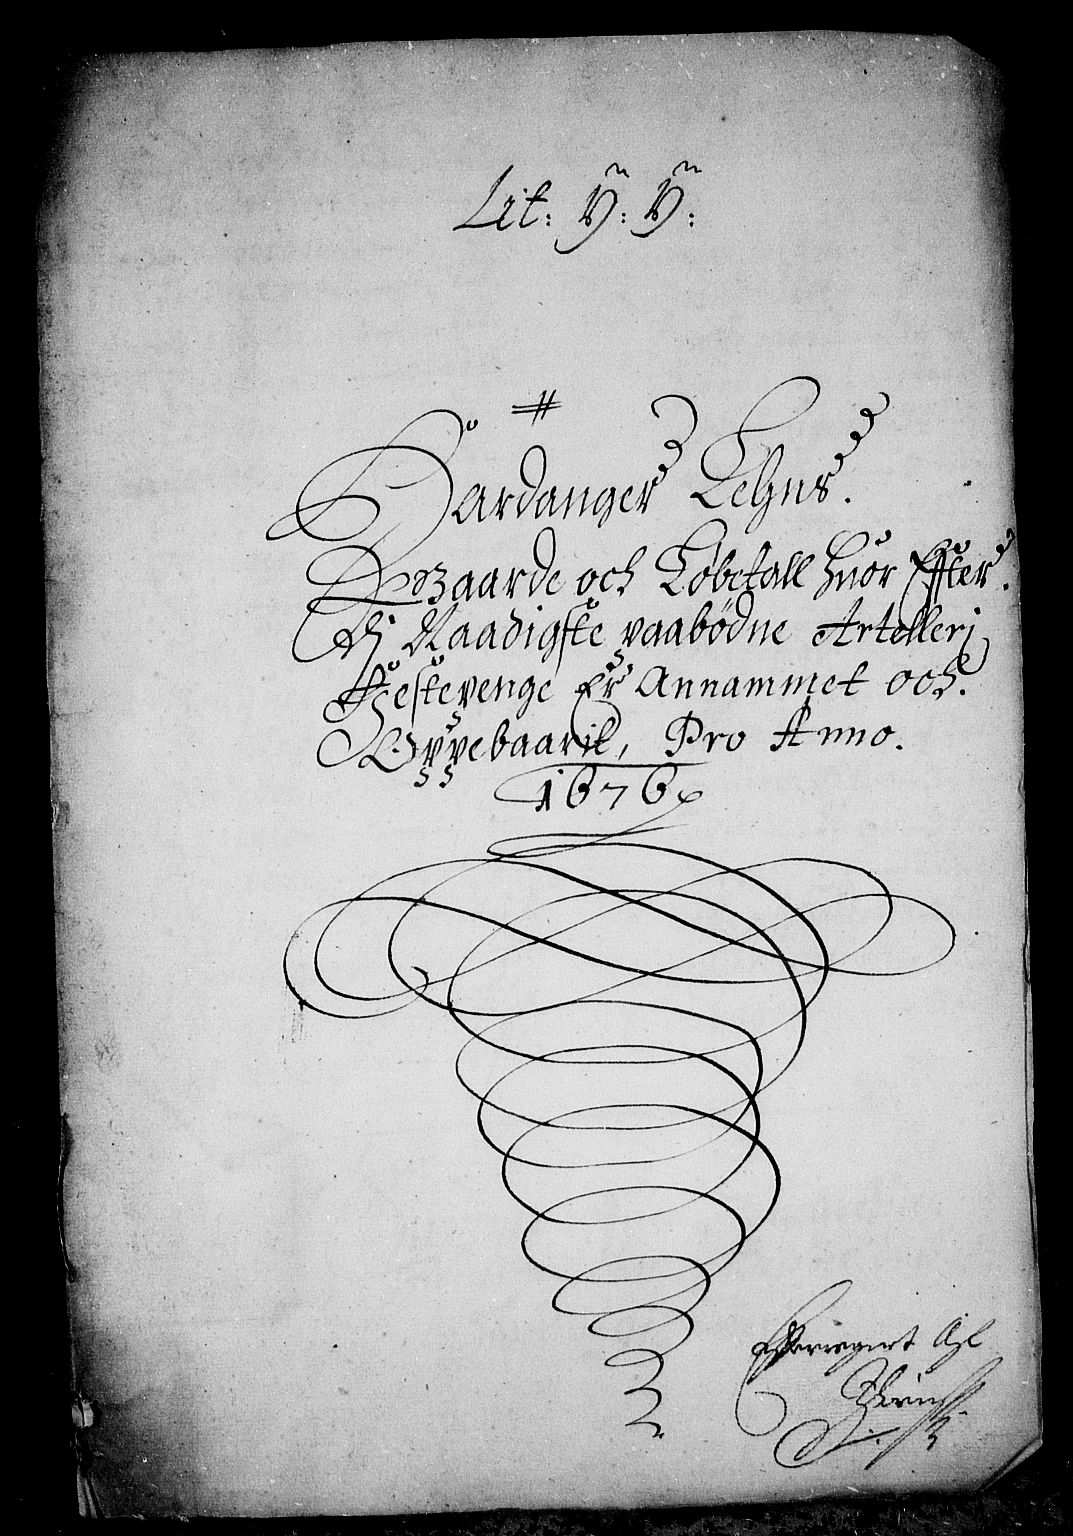 Lit: ÿ: ÿ:
Hardanger Lehns.
Gaarde och Løbetall huor Effter.
Dj Naadigste paabødne Artelleri
Hestepenge Er Annammet och.
Oppebaarit, Pro Anno.
1676